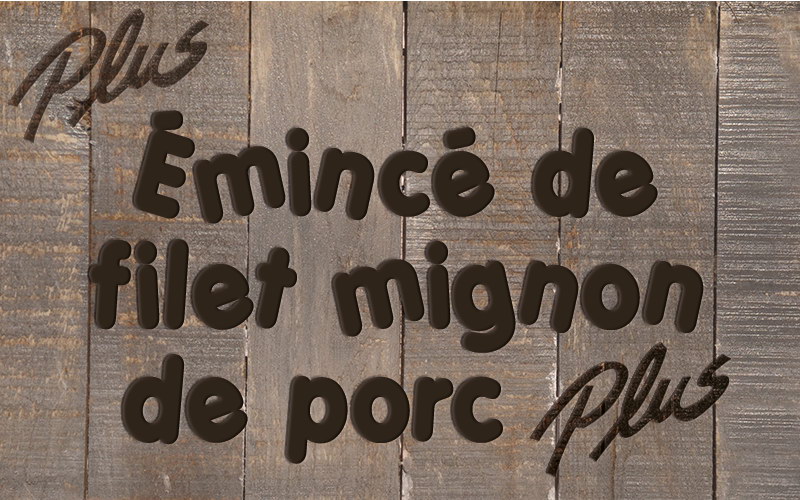 Plus
Émincé de
filet mignon
de porc Plus